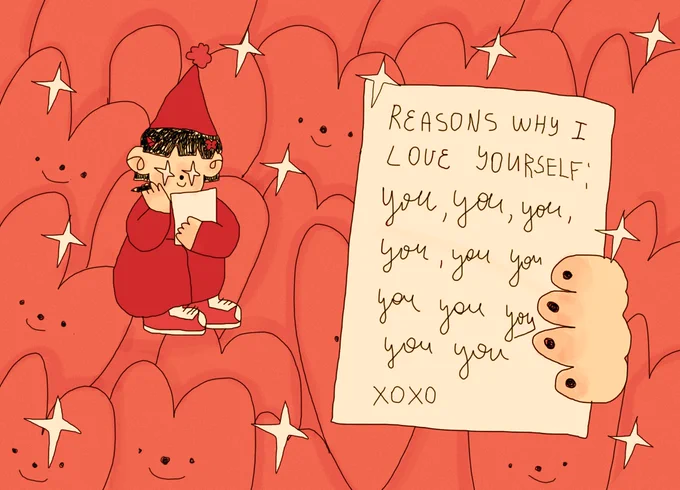 REASONS WHY I
LOVE YOURSELF:
you, you, you,
you, you you
you you you
you you
XOXO